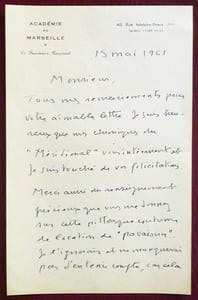 ACADÉMIE
DE
MARSEILLE
Le Secrétaire Perpétuel
40, Rue Adolphe-Thiers
15 mai 1961
Monsieur,
Tous mes remerciements pour
votre aimable lettre. Je suis heu-
reux que mes chroniques du
"Méridional" vous intéressent et
je suis touché de vos félicitations
Merci aussi du renseignement
précieux que vous me donnez
sur cette pittoresque coutume
de location de "
Je l'ignorais et ne manquerai
pas d'en tenir compte, car cela